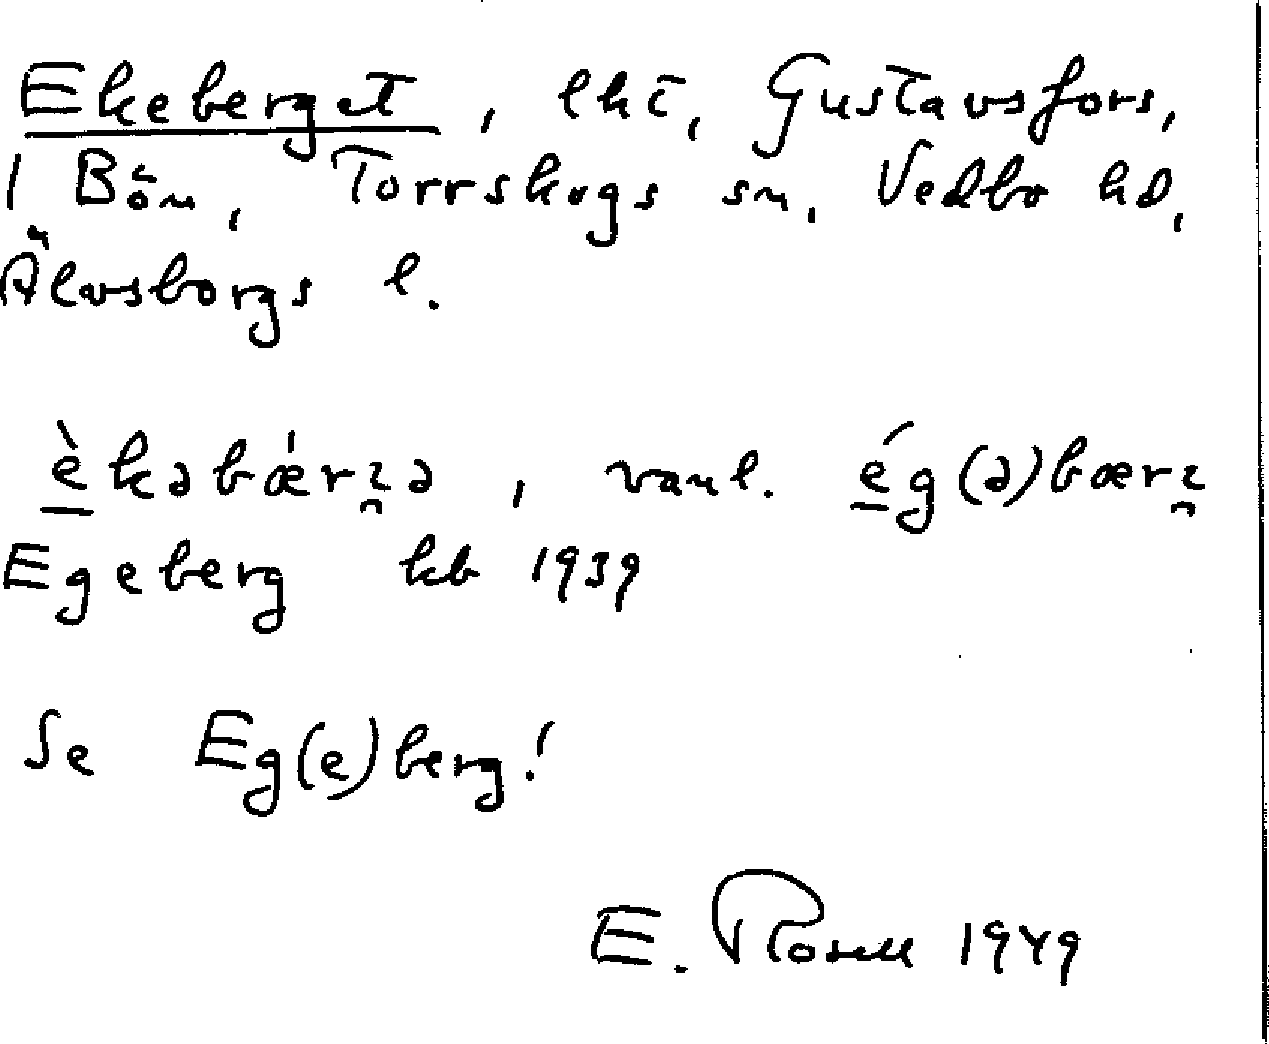 Ekeberget, lht, Gustavsfors,
1 Bön, Torrskogs sn, Vedbo hd,
Älvsborgs l.
èkəbǽrɿə, vanl. ég(ə)bærɿ
Egeberg kb 1939
Se Eg(e)berg!
E. Rosell 1949